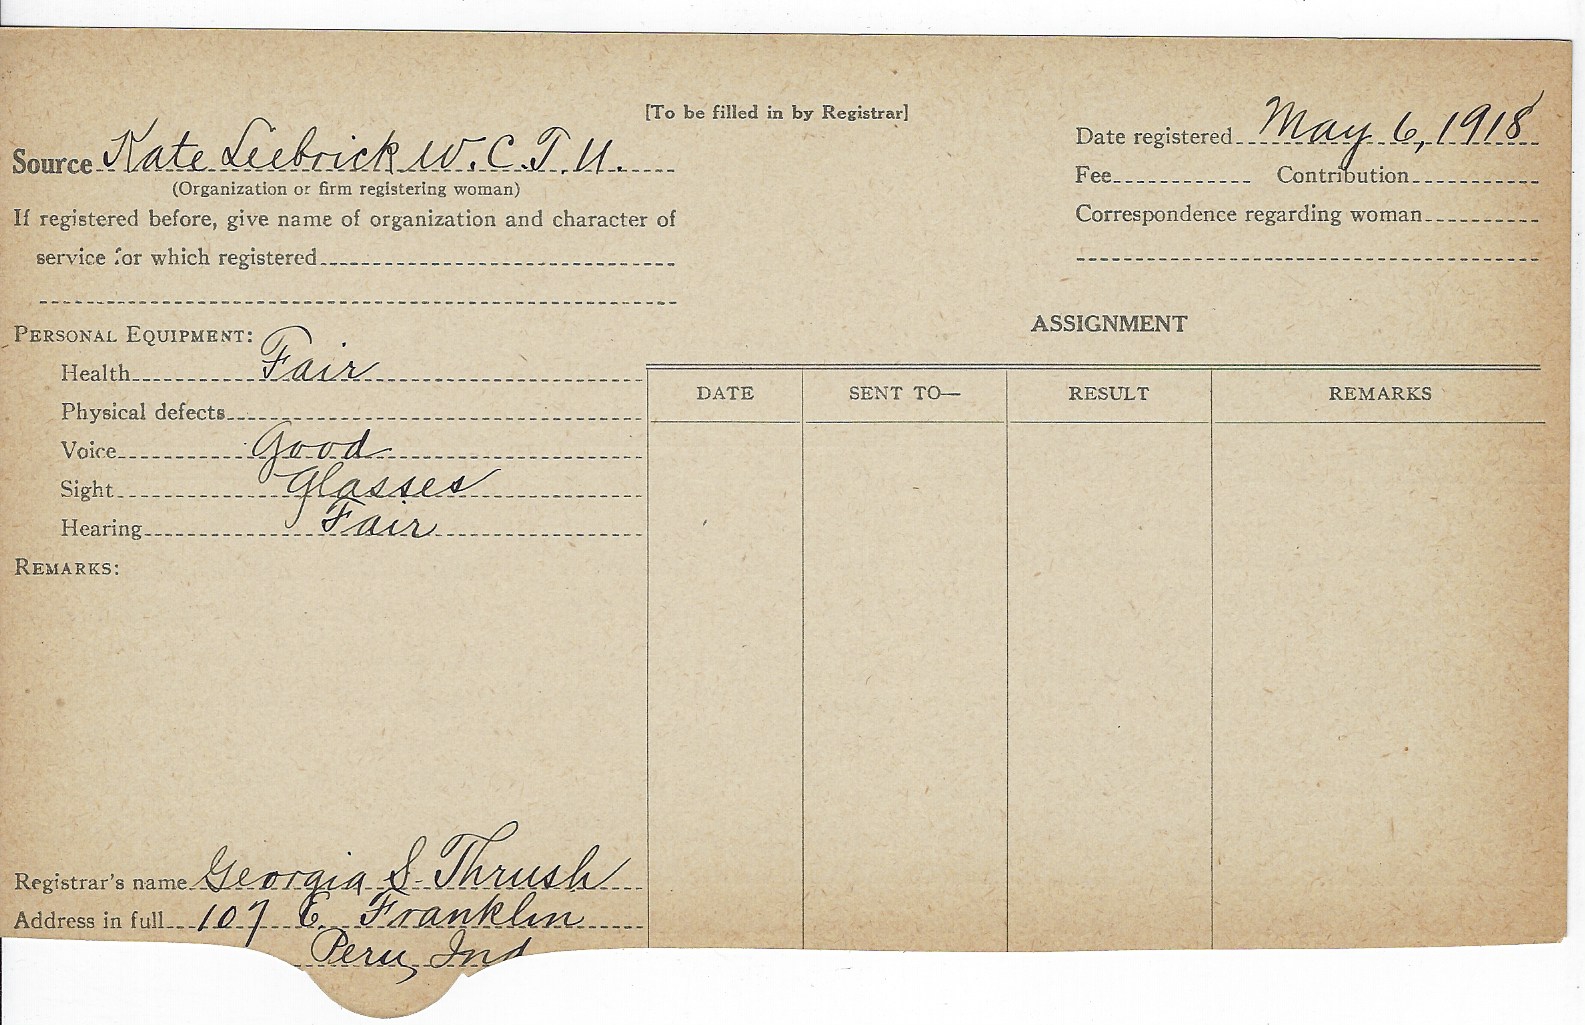 [To be filled in by Registrar]
Source Kate Liebrick W.C.T.U.
(Organization or firm registering woman)
If registered before, give name of organization and character of
service for which registered
Date registered May 6, 1918
Fee Contribution
Correspondence regarding woman
PERSONAL EQUIPMENT:
Health Fair
Physical defects
Voice Good
Sight Glasses
Hearing Fair
REMARKS:
ASSIGNMENT
DATE SENT TO— RESULT REMARKS
Registrar's name Georgia S. Thrush
Address in full 107 E. Franklin
Peru, Ind